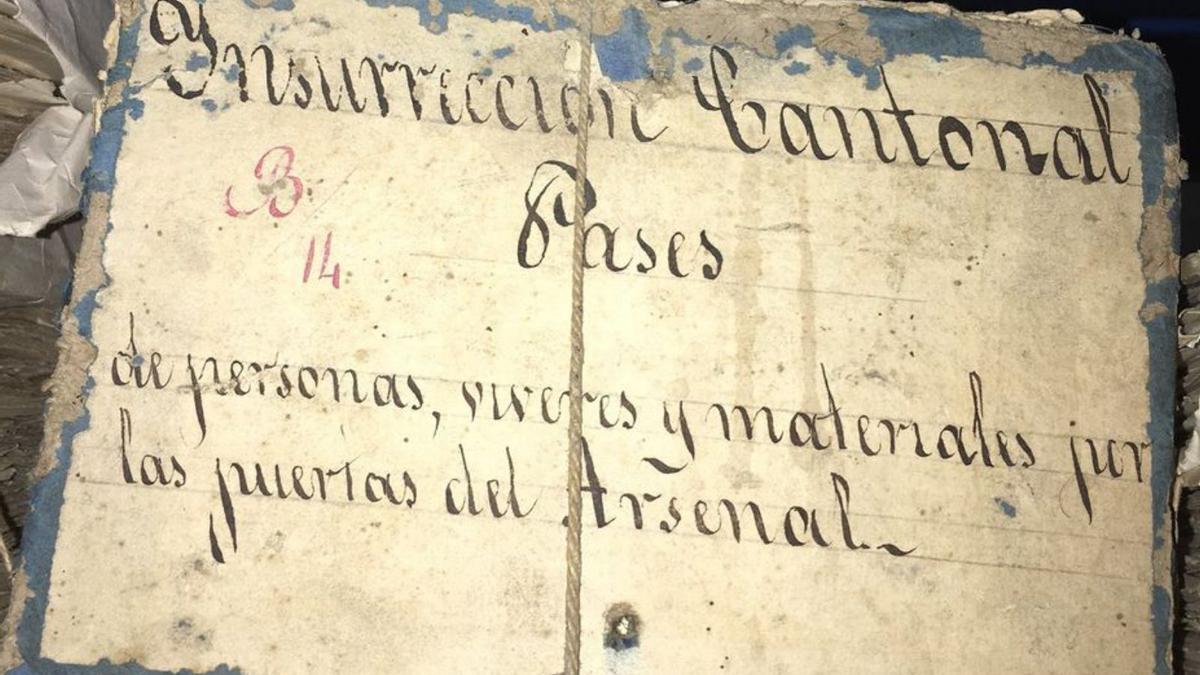 Insurrección Cantonal
B
14
Pases
de personas, viveres y materiales por
las puertas del Arsenal